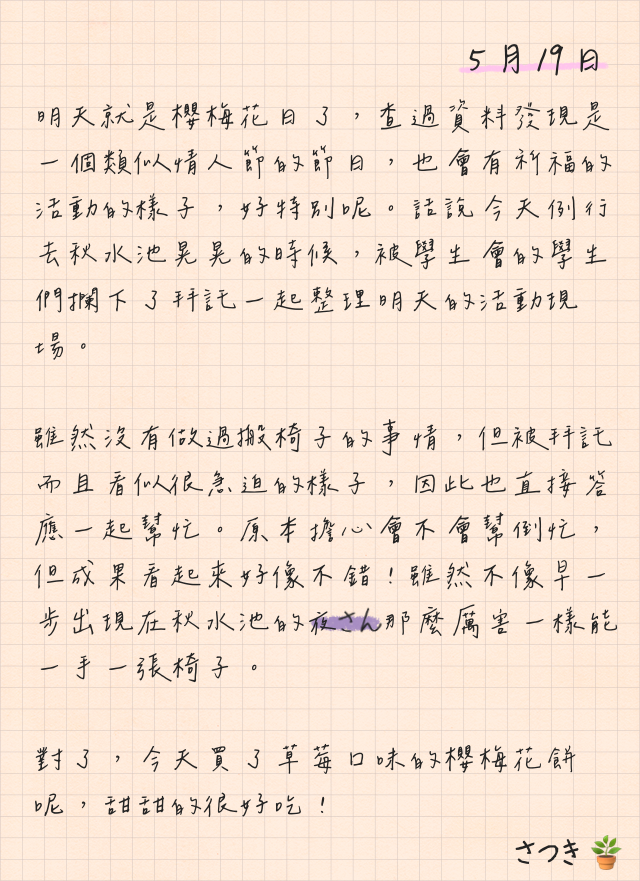 5月19日
明天就是櫻梅花日了，查過資料發現是
一個類似情人節的節日，也會有祈福的
活動的樣子，好特別呢。話說今天例行
去秋水池晃晃的時候，被學生會的學生
們攔下了拜託一起整理明天的活動現
場。
雖然沒有做過搬椅子的事情，但被拜託
而且看似很急迫的樣子，因此也直接答
應一起幫忙。原本擔心會不會幫倒忙，
但成果看起來好像不錯！雖然不像早一
步出現在秋水池的夜さん那麼厲害一樣能
一手一張椅子。
對了，今天買了草莓口味的櫻梅花餅
呢，甜甜的很好吃！
さつき